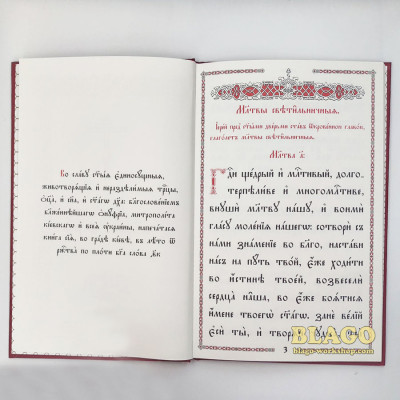 Во славу ст҃ыѧ є҆диносущныѧ,
животворѧщіѧ и҆ нераздѣльныѧ трⷪ҇цы,
ѻ҆ц҃а̀, и҆ сн҃а, и҆ ст҃а́гѡ дх҃а: благословенїемъ
блаженнѣйшагѡ ѻ҆нꙋфрїѧ, митрополита
кїевскагѡ и҆ всеѧ̀ ᲂу҆краины, напечатасѧ
книга сїѧ̀, во градѣ кїевѣ, въ лѣто ѿ
ржⷭ҇тва̀ по плоти бг҃а сло́ва
Мл҃твы свѣти́льничныѧ.
І҆ере́й пред̾ ст҃ы́ми две́рьми ста́въ ѿкрове́нною главо́ю,
глаго́летъ мл҃твы свѣти́льничныѧ.
Мл҃тва а҃:
Гдⷭ҇и ще́дрый и҆ млⷭ҇тивый, долго-
терпѣли́ве и҆ многомлⷭ҇тиве,
внꙋшѝ мл҃твꙋ на́шꙋ, и҆ вонмѝ
гла́сꙋ моле́нїѧ на́шегѡ: сотворѝ съ
на́ми зна́менїе во бл҃го, наста́ви
на́съ на пꙋ́ть тво́й, є҆́же ходи́ти
во и҆́стинѣ твое́й, возвеселѝ
сердца̀ на̑ша, во є҆́же боѧ́тисѧ
и҆́мене твоегѡ̀ ст҃а́гѡ, занѐ ве́лїй
є҆сѝ ты̀, и҆ творѧ́й чꙋдеса̀
3
BLAGO
blago-workshop.com